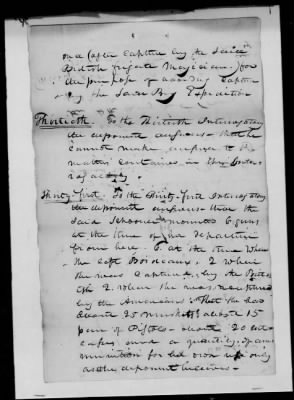 on a [after] capture by the said
British frigate Magician, for
the purpose of avoiding capture
by the said Any Expedition
Thirtieth. To the Thirtieth Interrogatory
the deponent answers that he
cannot make answer to the
matters contained in this Inter-
rogatory
Thirty-first. To the Thirty-first Interrogatory
the deponent answers that the
said Schooner mounted 6 guns
at the time of her departure
from here. 6 at the time when
she left Bordeaux, 2 when
she was captured by the British
& 2 when she was recaptured
by the Americans. That she had
about 25 muskets, about 15
pair of Pistols, about 20 cut-
lasses and a quantity of am-
munition for her own use only
as the deponent believes.